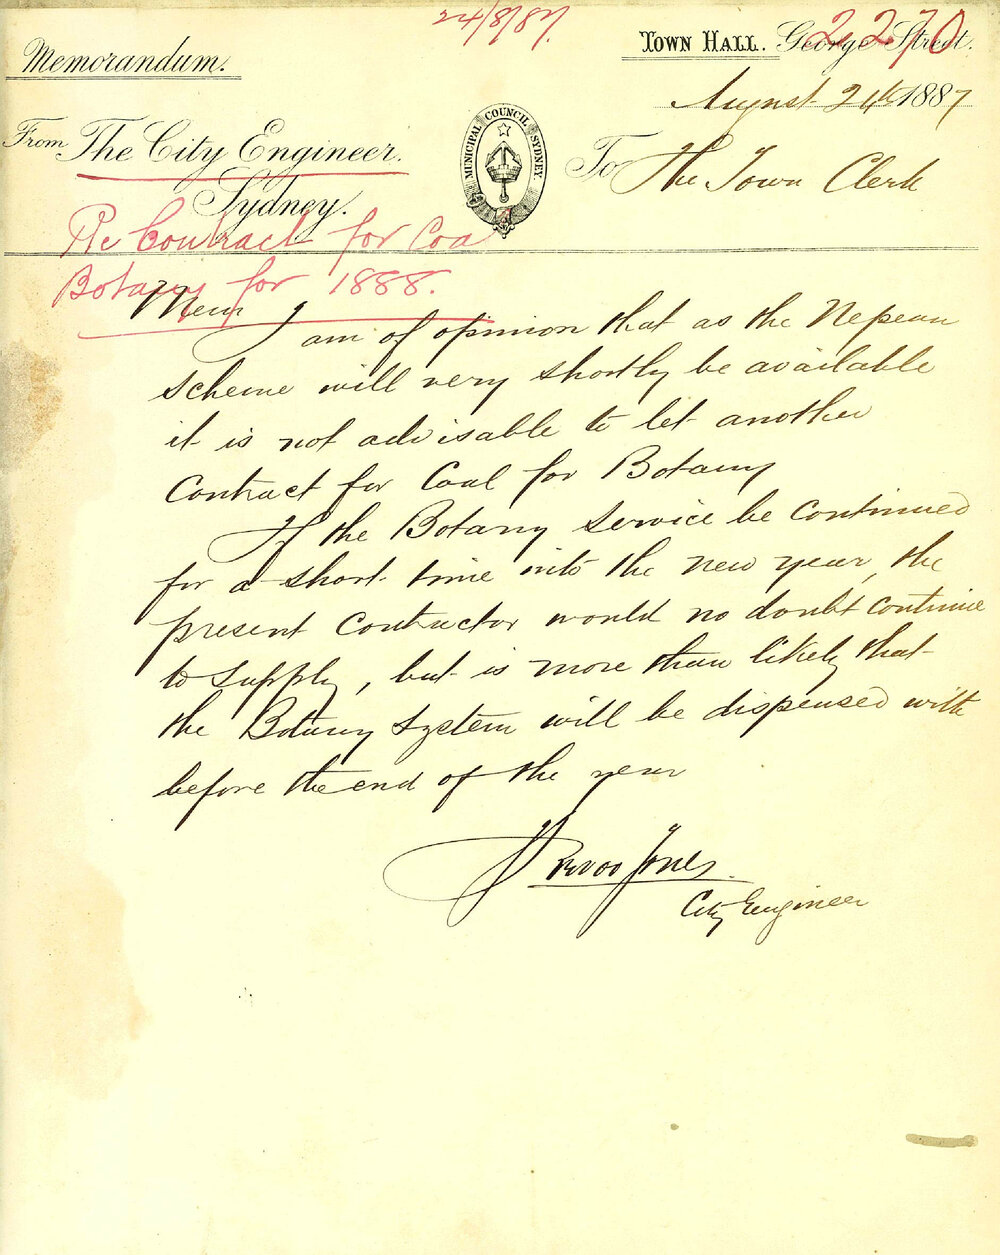 24/8/87.
2270
Memorandum.
Town Hall. George Street.
August 24th 1887
From The City Engineer.
Sydney.
MUNICIPAL COUNCIL SYDNEY.
To The Town Clerk
Re Contract for Coal
Botany for 1888.
Mem
I am of opinion that as the Nepean
scheme will very shortly be available
it is not advisable to let another
Contract for Coal for Botany
If the Botany service be continued
for a short time into the new year, the
present contractor would no doubt continue
to supply, but is more than likely that
the Botany system will be dispensed with
before the end of the year
Trevor Jones.
City Engineer